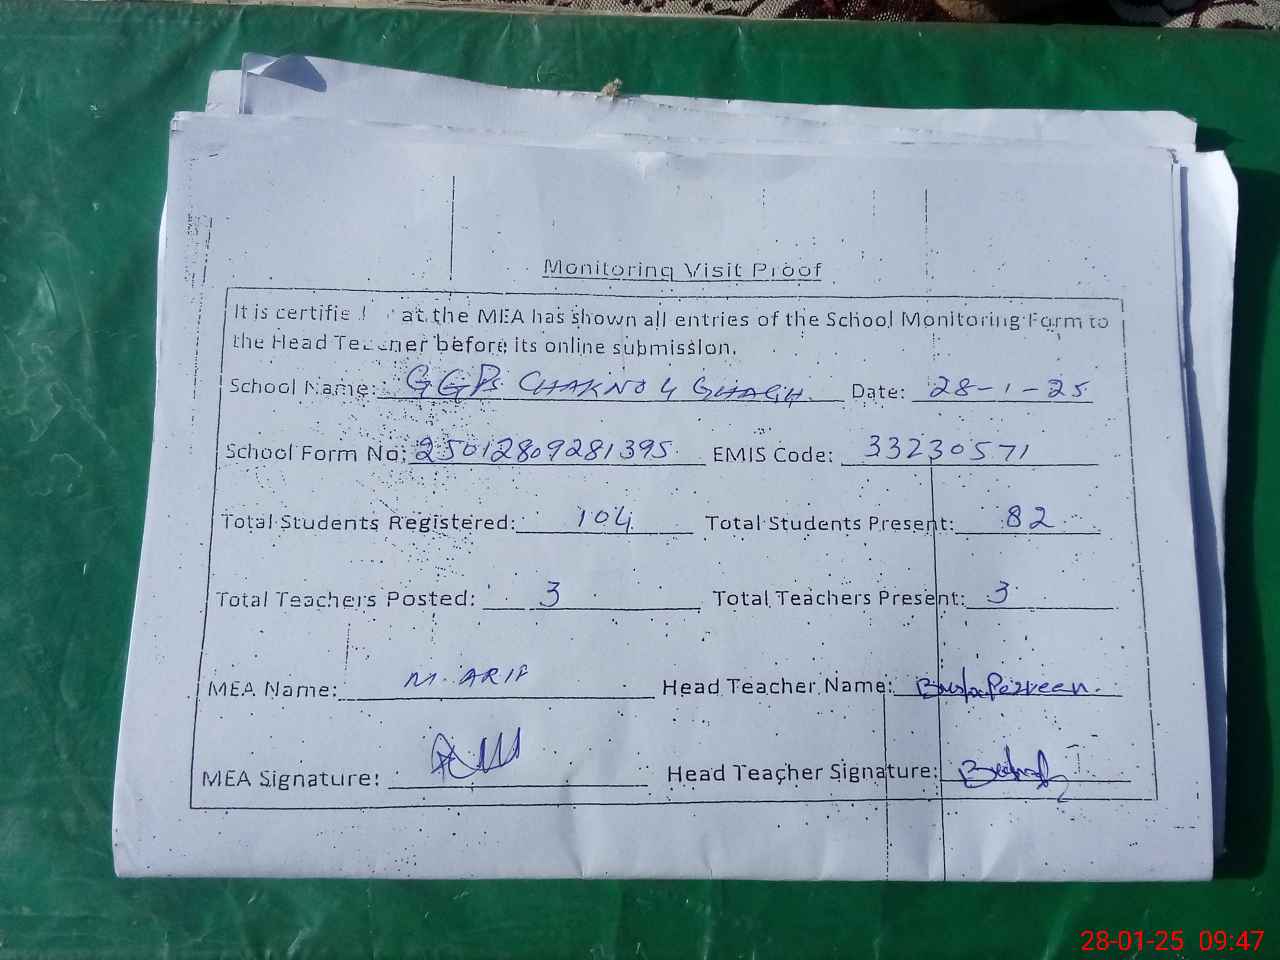 Monitoring Visit Proof
It is at the MEA has shown all entries of the School Monitoring Form to
the Head before its online submission.
School Name: GGPS CHAK NO 4 GHAGH. Date: 28-1-25
School Form No: 25012809281395 EMIS Code: 33230571
Total Students Registered: 104 Total Students Present: 82
Total Teachers Posted: 3 Total Teachers Present: 3
MEA Name: M. ARIF Head Teacher Name: Perveen.
MEA Signature: Head Teacher Signature:
28-01-25 09:47